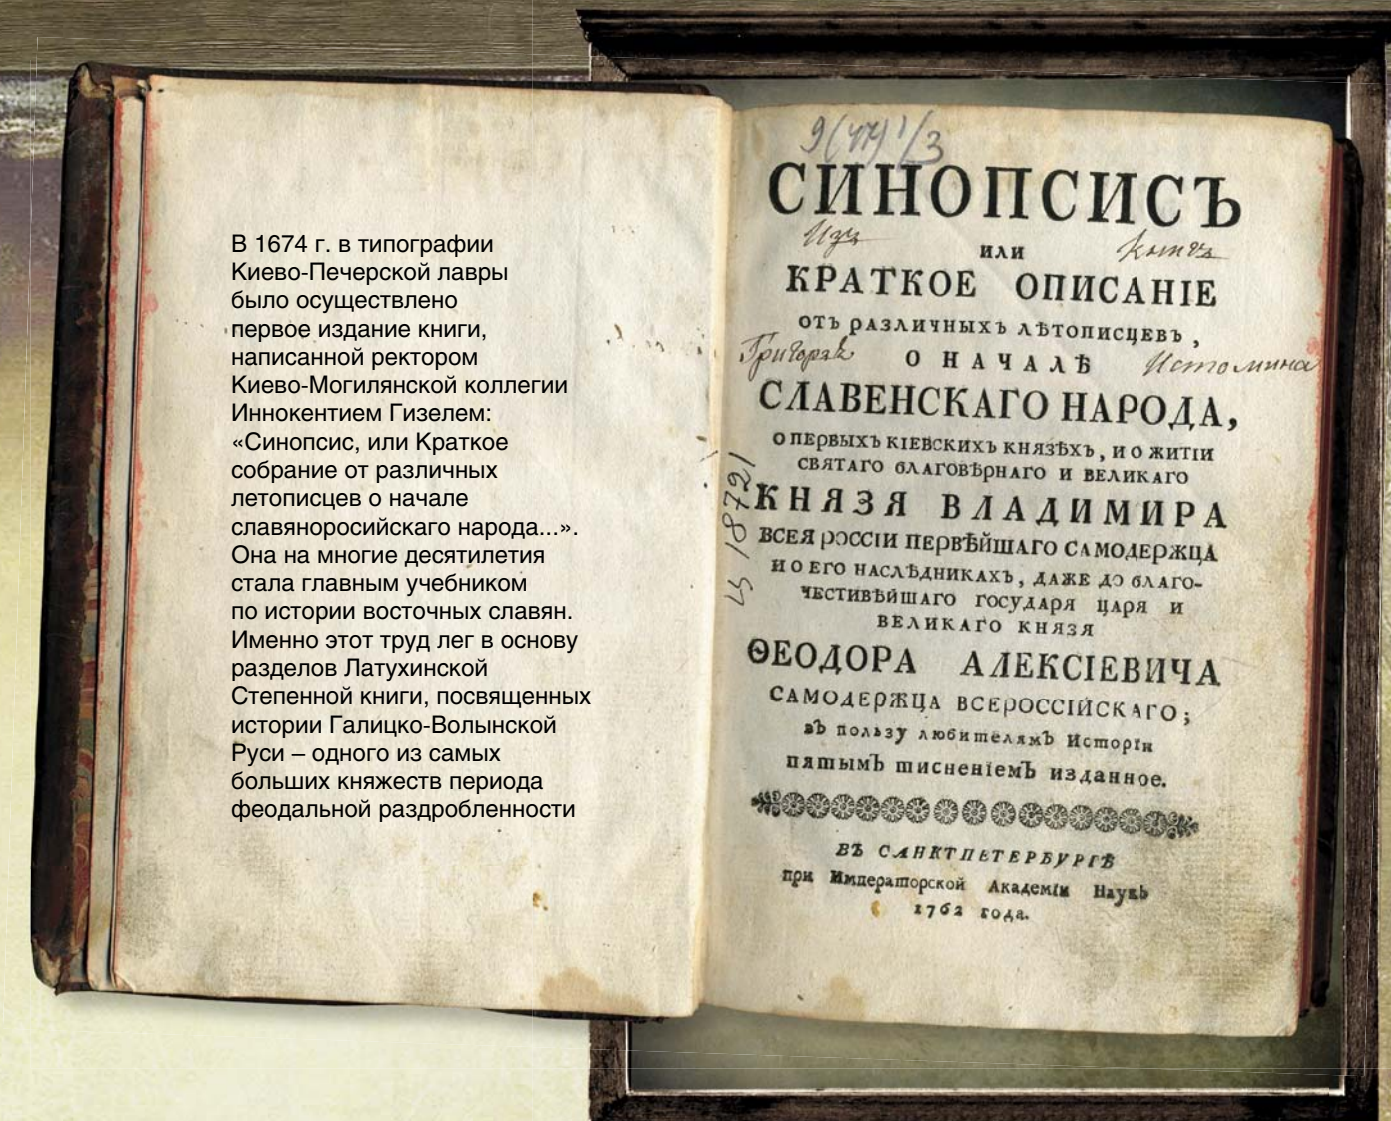 В 1674 г. в типографии
Киево-Печерской лавры
было осуществлено
первое издание книги,
написанной ректором
Киево-Могилянской коллегии
Иннокентием Гизелем:
«Синопсис, или Краткое
собрание от различных
летописцев о начале
славяноросийскаго народа...».
Она на многие десятилетия
стала главным учебником
по истории восточных славян.
Именно этот труд лег в основу
разделов Латухинской
Степенной книги, посвященных
истории Галицко-Волынской
Руси – одного из самых
больших княжеств периода
феодальной раздробленности
9(47)1/3
СИНОПСИСЪ
Изъ
или
Книгъ
КРАТКОЕ ОПИСАНІЕ
отъ различныхъ лѣтописцевъ,
О НАЧАЛѢ
Истомина
СЛАВЕНСКАГО НАРОДА,
о первыхъ кіевскихъ князѣхъ, и о житіи
святаго благовѣрнаго и великаго
КНЯЗЯ ВЛАДИМИРА
всея россіи первѣйшаго самодержца
и о его наслѣдникахъ, даже до благо-
честивѣйшаго государя царя и
великаго князя
ѲЕОДОРА АЛЕКСІЕВИЧА
самодержца всероссійскаго;
въ пользу любителямъ Исторіи
пятымъ тисненіемъ изданное.
ВЪ САНКТПЕТЕРБУРГѢ
при Императорской Академіи Наукъ
1762 года.
18721